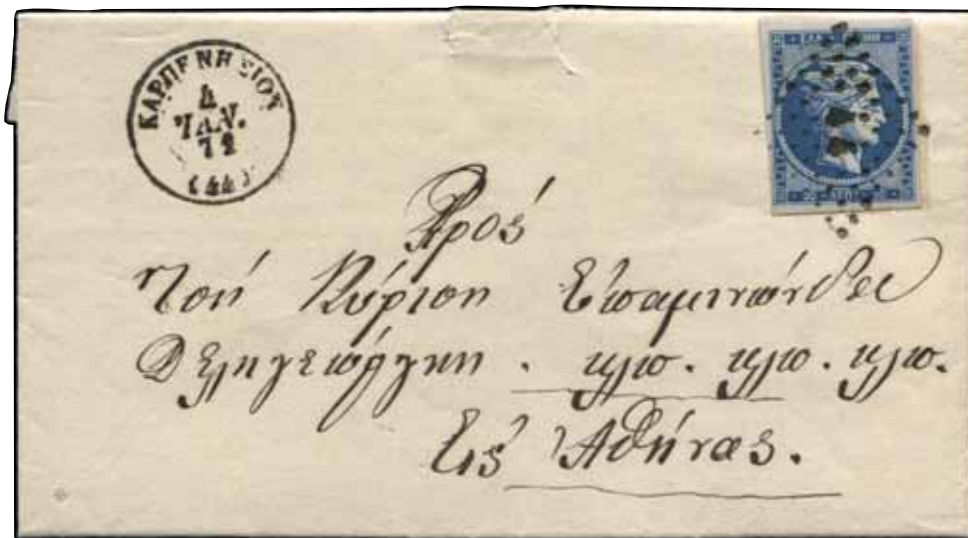 ΚΑΡΠΕΝΗΣΙΟΥ
4
ΙΑΝ.
72
(44)
Πρός
Τον Κύριον Επαμινώνδα
Δεληγεώργην . κλπ. κλπ. κλπ.
Εις Αθήνας.